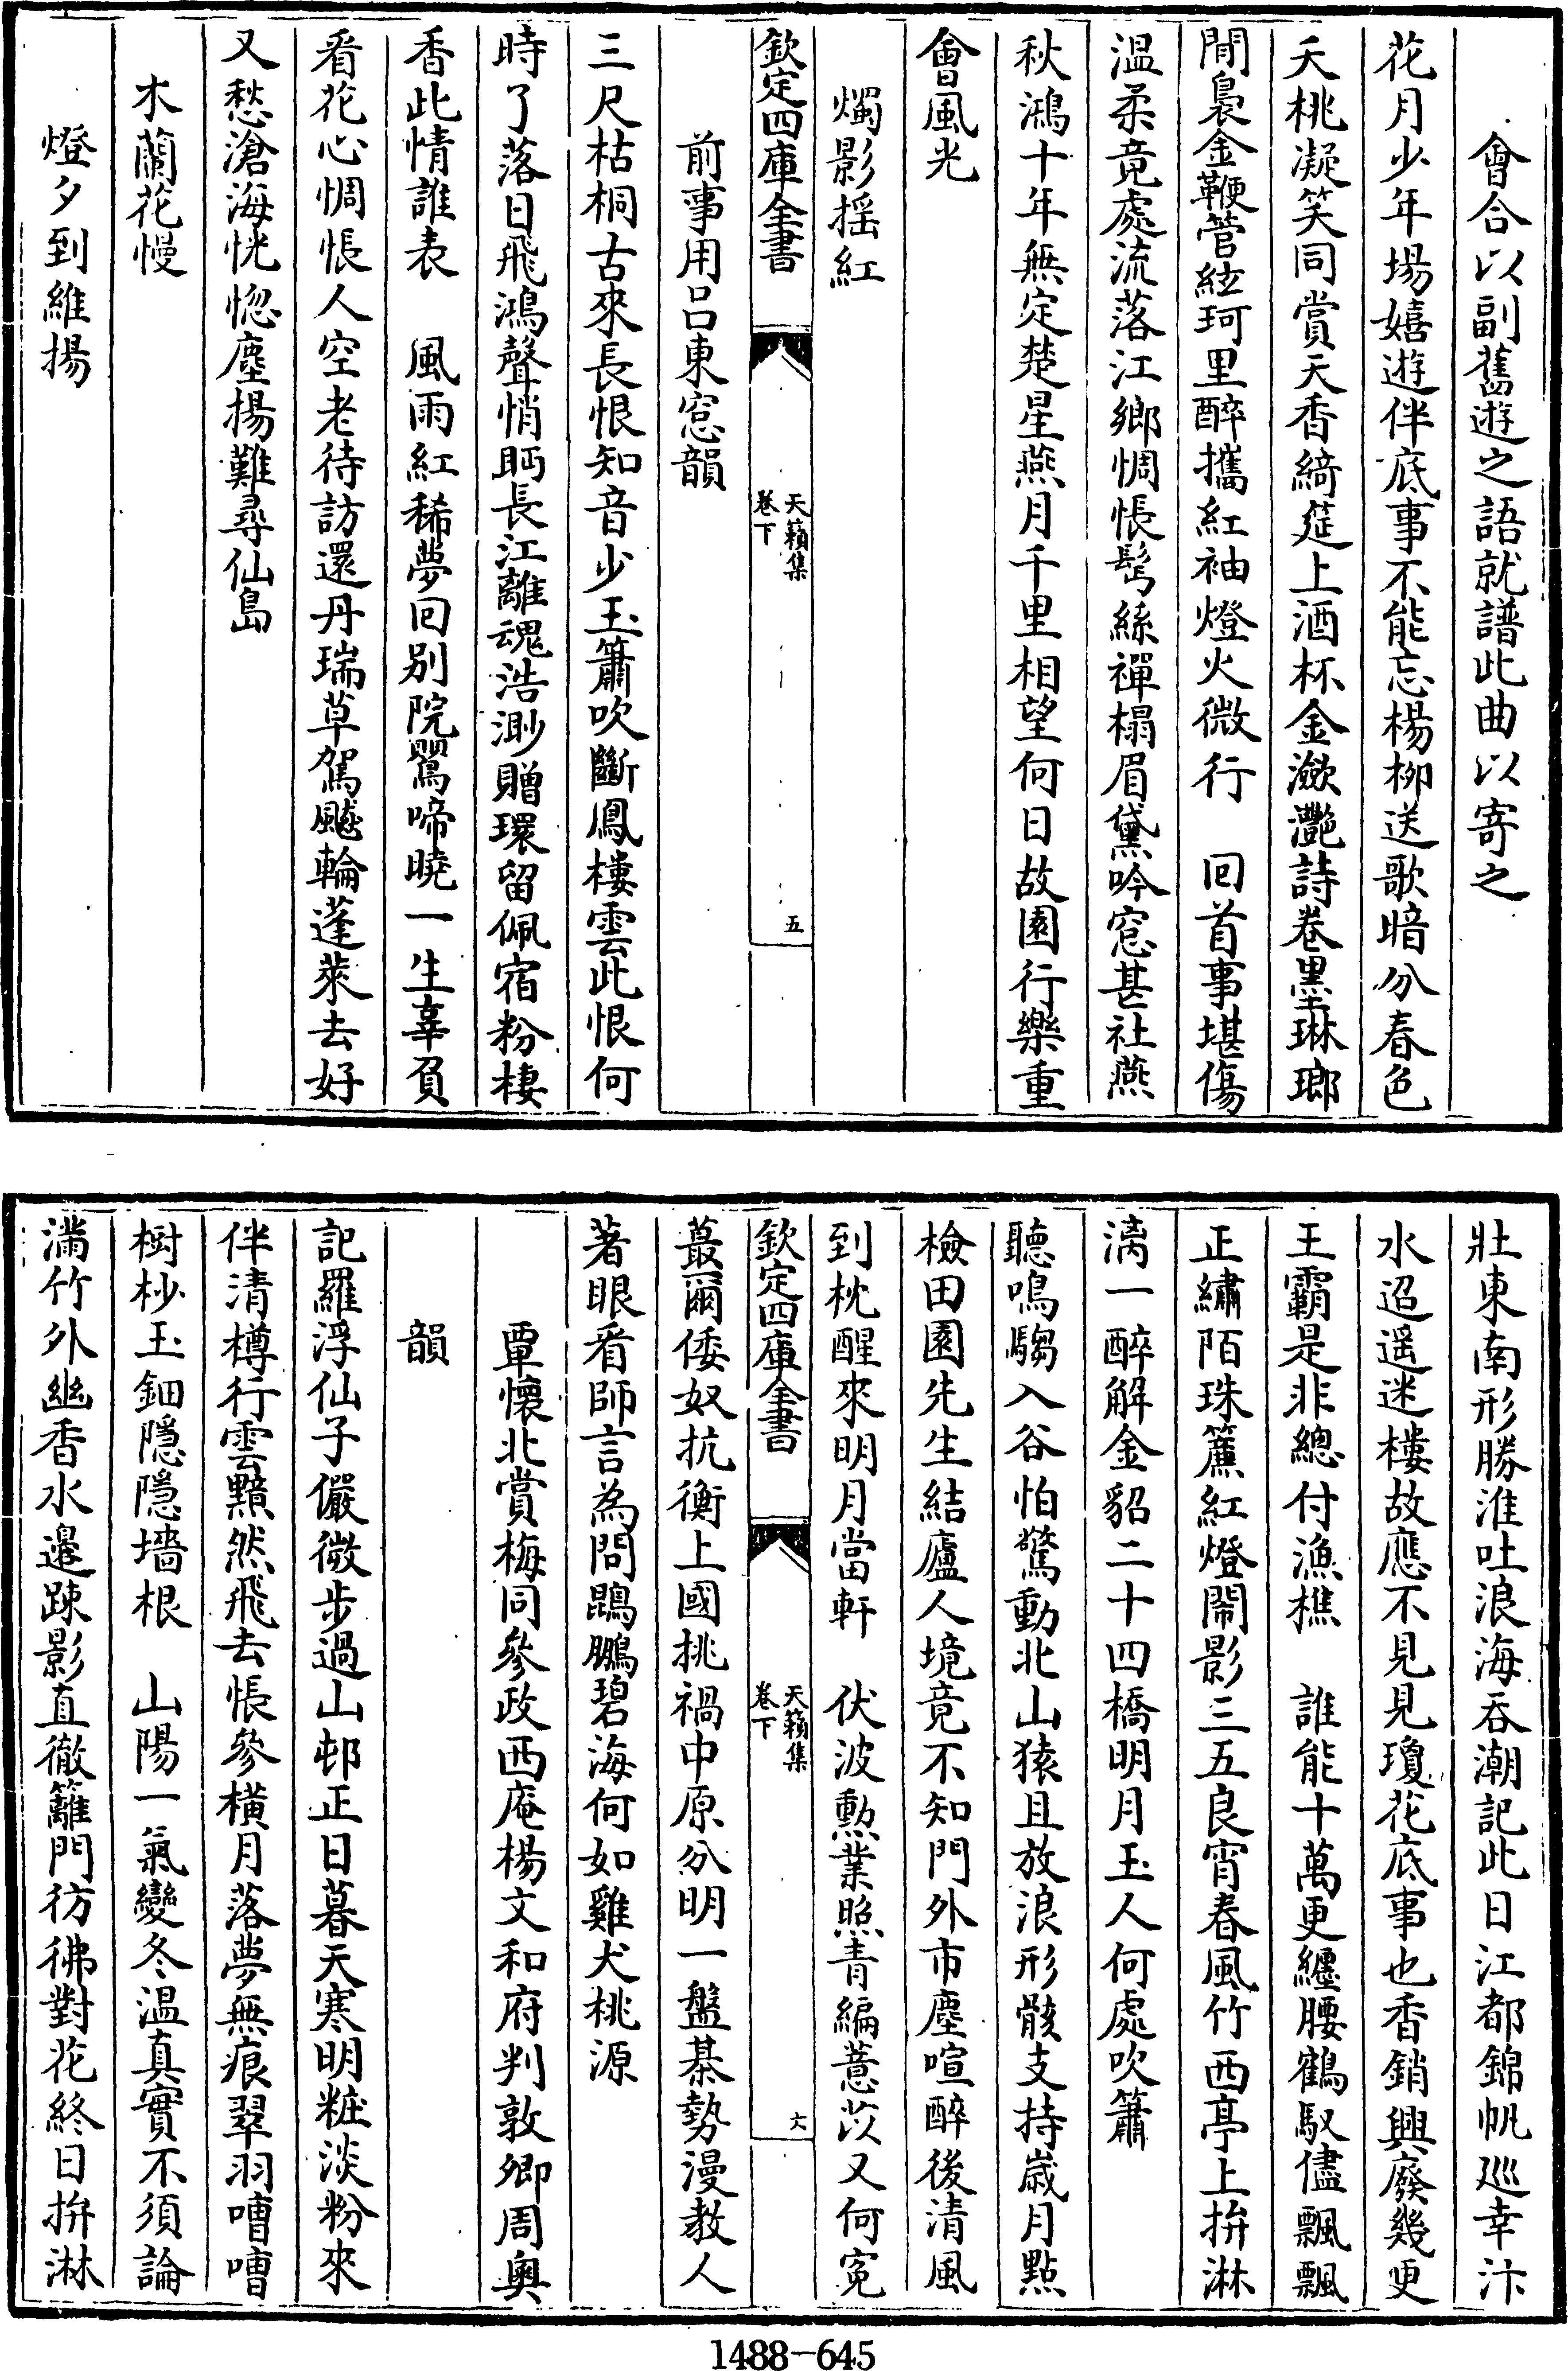 會合以副舊遊之語就譜此曲以寄之
花月少年場嬉遊伴底事不能忘楊柳送歌暗分春色
夭桃凝笑同賞天香綺筵上酒杯金瀲灔詩卷墨琳瑯
間裊金鞭管絃珂里醉攜紅袖燈火微行　回首事堪傷
溫柔竟處流落江鄉惆悵髩絲禪榻眉黛吟窓甚社燕
秋鴻十年無定楚星燕月千里相望何日故園行樂重
會風光
燭影揺紅
欽定四庫全書
天籟集
卷下
五
前事用呂東窓韻
三尺枯桐古來長恨知音少玉簫吹斷鳳樓雲此恨何
時了落日飛鴻聲悄眄長江離魂浩渺贈環留佩宿粉棲
香此情誰表　風雨紅稀夢回別院鸎啼曉一生辜負
看花心惆悵人空老待訪還丹瑞草駕飈輪蓬萊去好
又愁滄海恍惚塵揚難尋仙島
木蘭花慢
燈夕到維揚
壯東南形勝淮吐浪海吞潮記此日江都錦帆巡幸汴
水迢遥迷樓故應不見見瓊花底事也香銷興廢幾更
王霸是非總付漁樵　誰能十萬更纏腰鶴馭儘飄飄
正繡陌珠簾紅燈鬧影三五良宵春風竹西亭上拚淋
漓一醉解金貂二十四橋明月玉人何處吹簫
聽鳴騶入谷怕驚動北山猿且放浪形骸支持歲月點
檢田園先生結廬人境竟不知門外市塵喧醉後清風
到枕醒來明月當軒　伏波勲業照青編薏苡又何寃
欽定四庫全書
天籟集
卷下
六
蕞爾倭奴抗衡上國挑禍中原分明一盤棊勢漫教人
著眼看師言為問鵾鵬碧海何如雞犬桃源
覃懷北賞梅同參政西庵楊文和府判敦卿周奧
韻
記羅浮仙子儼微步過山邨正日暮天寒明粧淡粉來
伴清樽行雲黯然飛去悵參橫月落夢無痕翠羽嘈嘈
樹杪玉鈿隱隱墻根　山陽一氣變冬溫真實不須論
滿竹外幽香水邊疎影直徹籬門彷彿對花終日拚淋
1488—645